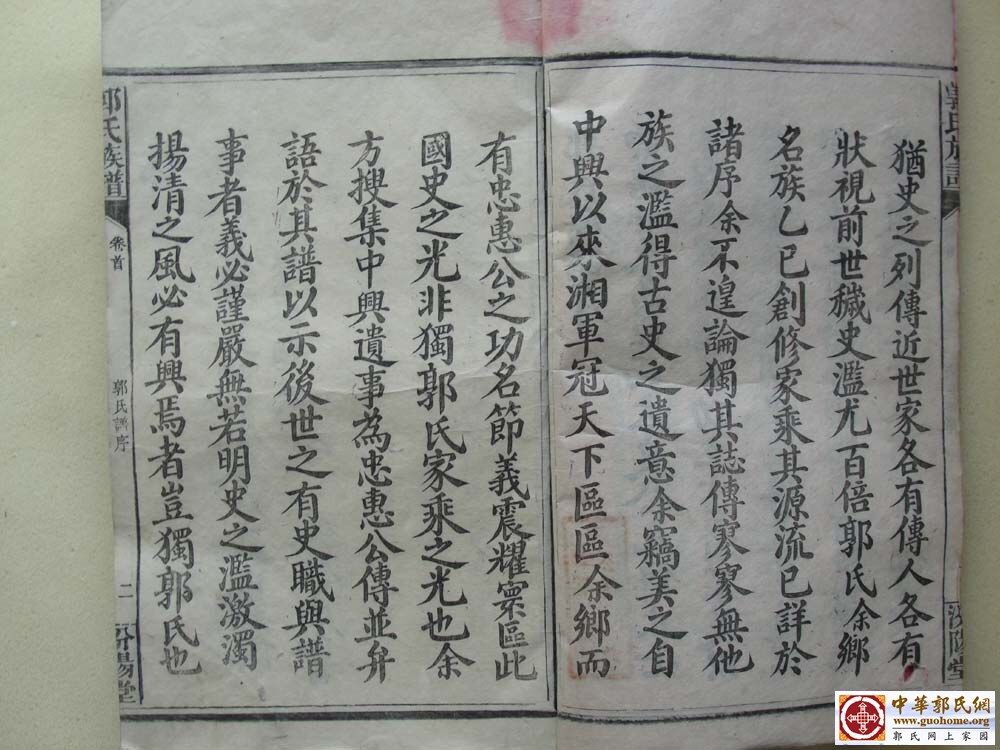 猶史之列傳近世家各有傳人各有
狀視前世穢史濫尤百倍郭氏余鄉
名族乙巳創修家乘其源流已詳於
諸序余不遑論獨其誌傳寥寥無他
族之濫得古史之遺意余竊美之自
中興以來湘軍冠天下區區余鄉而
有忠惠公之功名節義震耀寰區此
國史之光非獨郭氏家乘之光也余
方搜集中興遺事為忠惠公傳並弁
語於其譜以示後世之有史職與譜
事者義必謹嚴無若明史之濫激濁
揚清之風必有興焉者豈獨郭氏也
郭氏族譜
卷首
郭氏譜序
二
汾陽堂
郭氏族譜
汾陽堂
中華郭氏網
www.guohome.org
郭氏网上家园